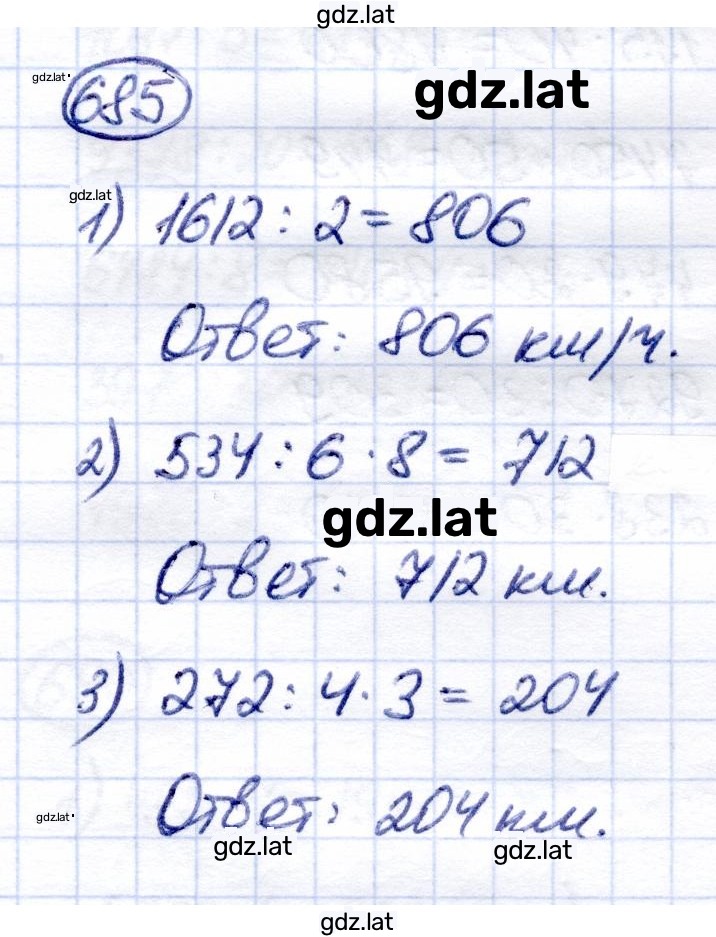 gdz.lat
gdz.lat
685
gdz.lat
gdz.lat
1) 1612 : 2 = 806
Ответ: 806 км/ч.
2) 534 : 6 · 8 = 712
gdz.lat
Ответ: 712 км.
3) 272 : 4 · 3 = 204
gdz.lat
Ответ: 204 км.
gdz.lat
gdz.lat
gdz.lat